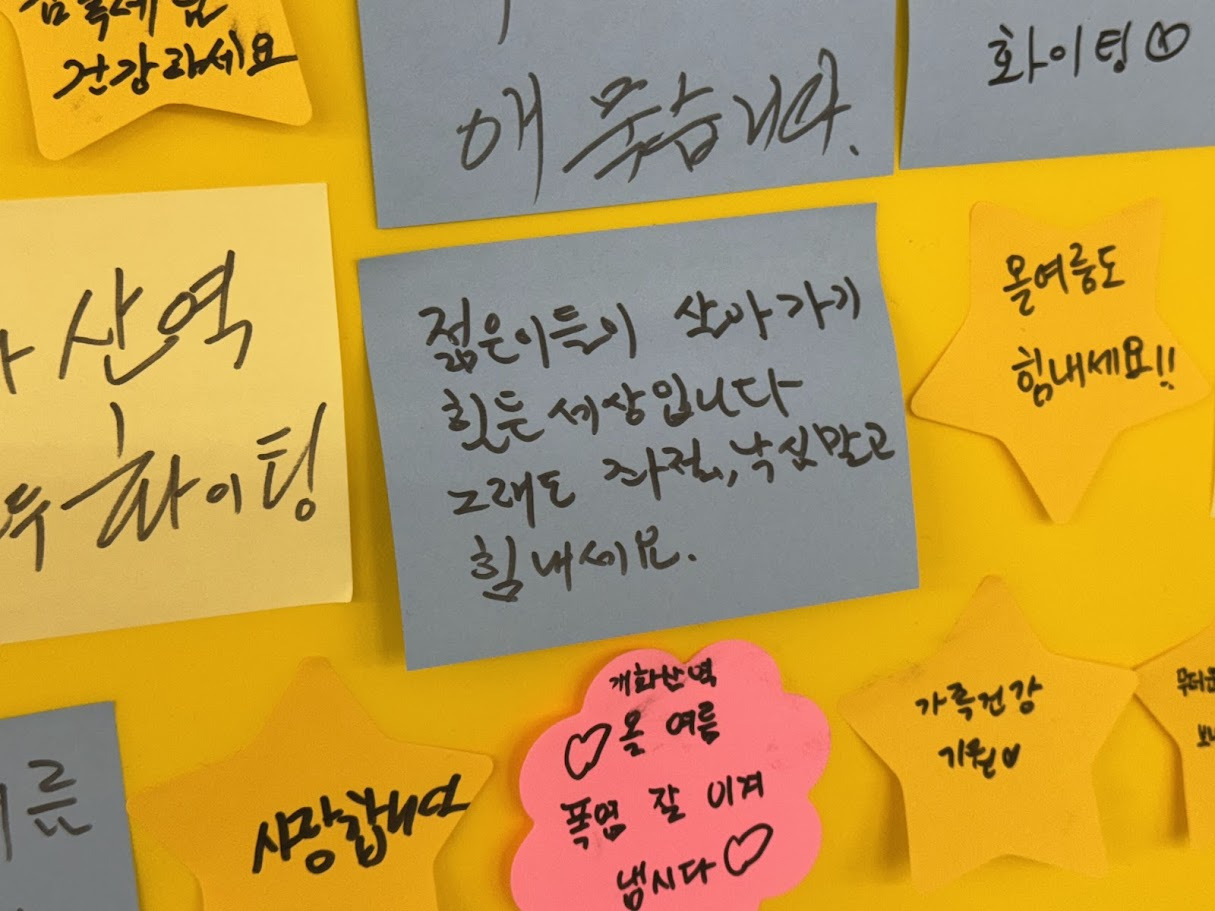 건강하세요
애 묵습니다.
화이팅
산역
화이팅
젊은이들이 살아가기
힘든 세상입니다
그래도 좌절, 낙심말고
힘내세요.
올여름도
힘내세요!!
사랑합니다
개화산역
올 여름
폭염 잘 이겨
냅시다
가족건강
기원